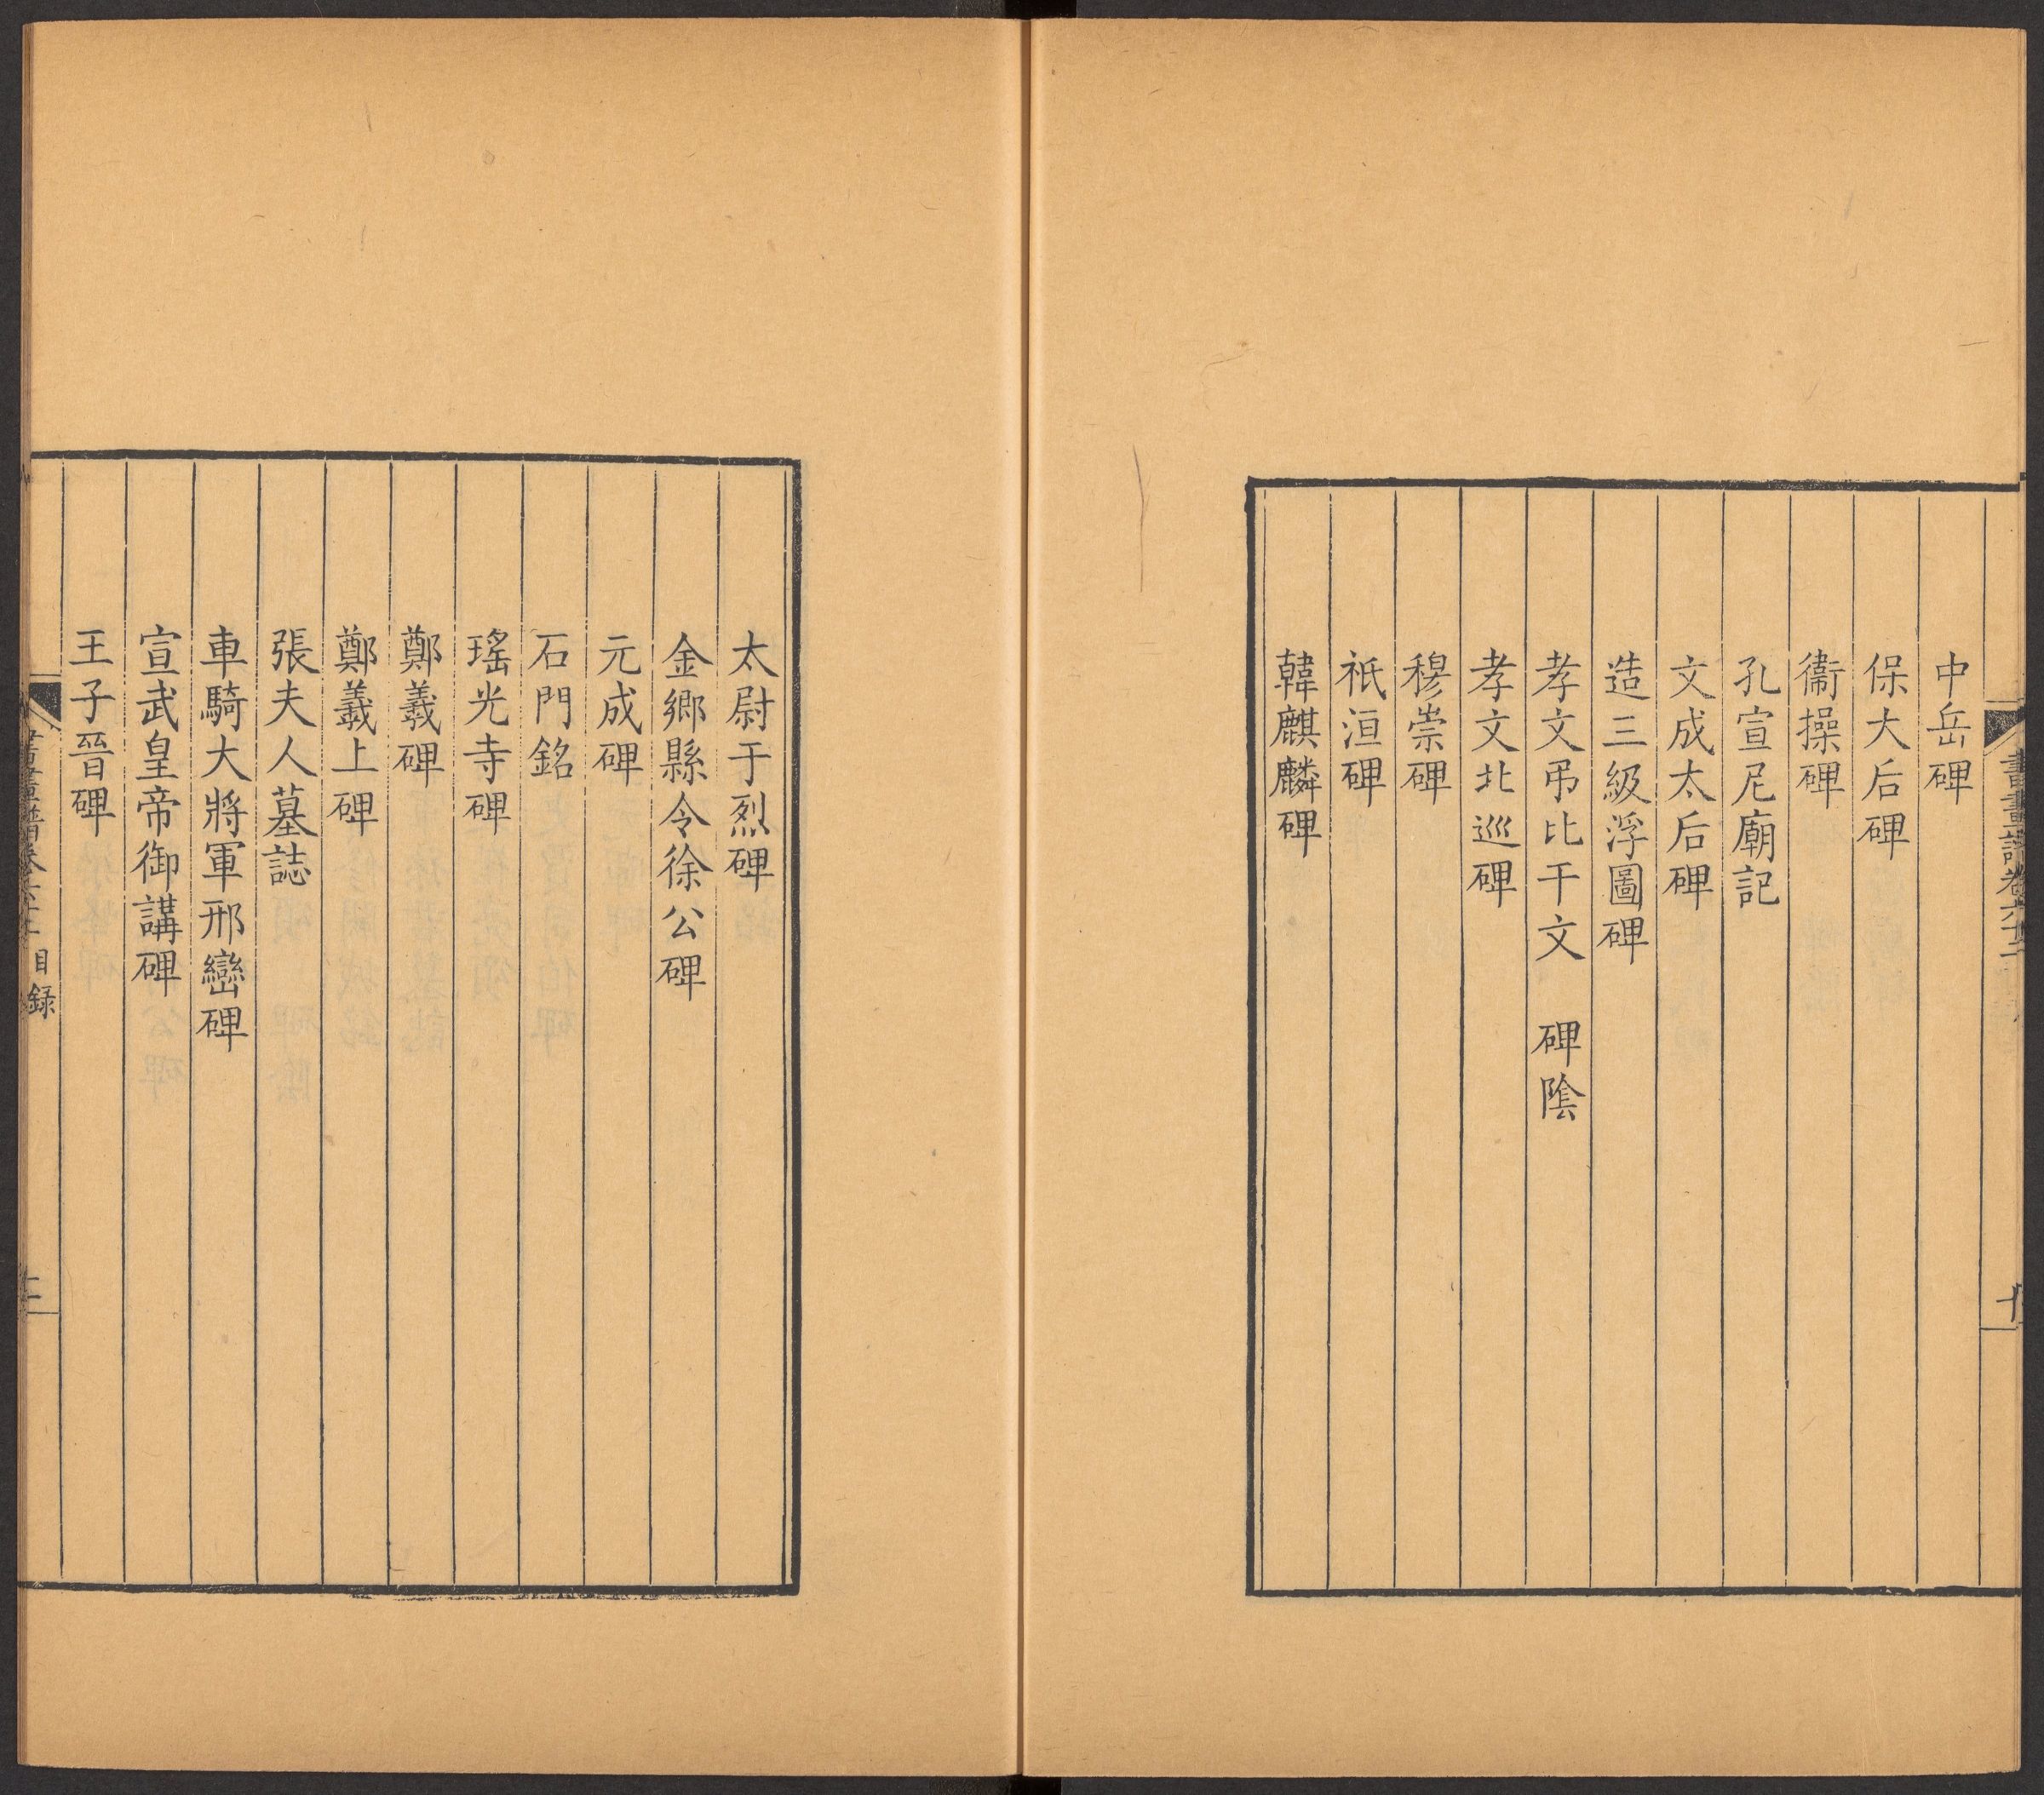 中岳碑
保大后碑
衞操碑
孔宣尼廟記
文成太后碑
造三級浮圖碑
孝文弔比干文　碑陰
孝文北巡碑
穆崇碑
祇洹碑
韓麒麟碑
太尉于烈碑
金鄉縣令徐公碑
元成碑
石門銘
瑤光寺碑
鄭羲碑
鄭羲上碑
張夫人墓誌
車騎大將軍邢巒碑
宣武皇帝御講碑
王子晉碑
目録